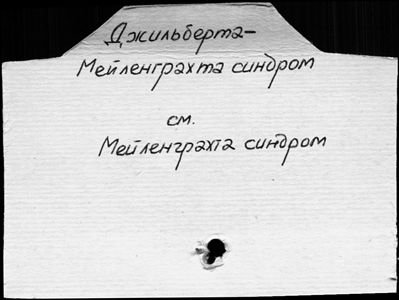 Джильберта-
Мейленграхта синдром
см.
Мейленграхта синдром